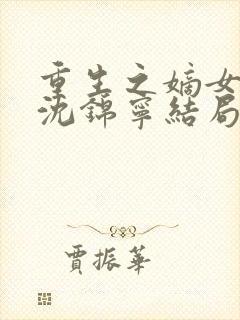 重生之嫡女
沈錦寧結局
賈振華